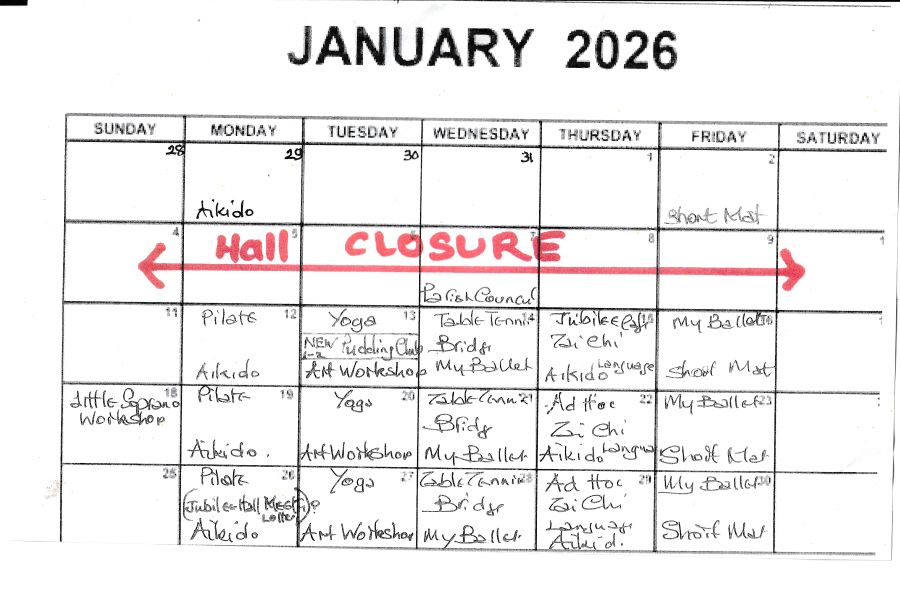 JANUARY 2026
SUNDAY MONDAY TUESDAY WEDNESDAY THURSDAY FRIDAY SATURDAY
28 29 30 31 1 2
Aikido Short Mat
4 5 6 7 8 9 1
Hall CLOSURE
Parish Council
11 Pilate 12 Yoga 13 Table Tennis 14 Jubilee 15 My Ballet 16
NEW Pudding Club Bridge Tai Chi
1-2
Aikido Art Workshop My Ballet Aikido Language Short Mat
18 Pilate 19 Yoga 20 Table Tennis 21 Ad Hoc 22 My Ballet 23
Little Soprano
Workshop Bridg Zi Chi
Aikido. Art Workshop My Ballet Aikido Langua Short Mat
25 Pilate 26 Yoga 27 Table Tennis 28 Ad Hoc 29 My Ballet 30
(Jubilee Hall Meeti)? Bridge Tai Chi
Language
Aikido Art Workshop My Ballet Aikid. Short Mat